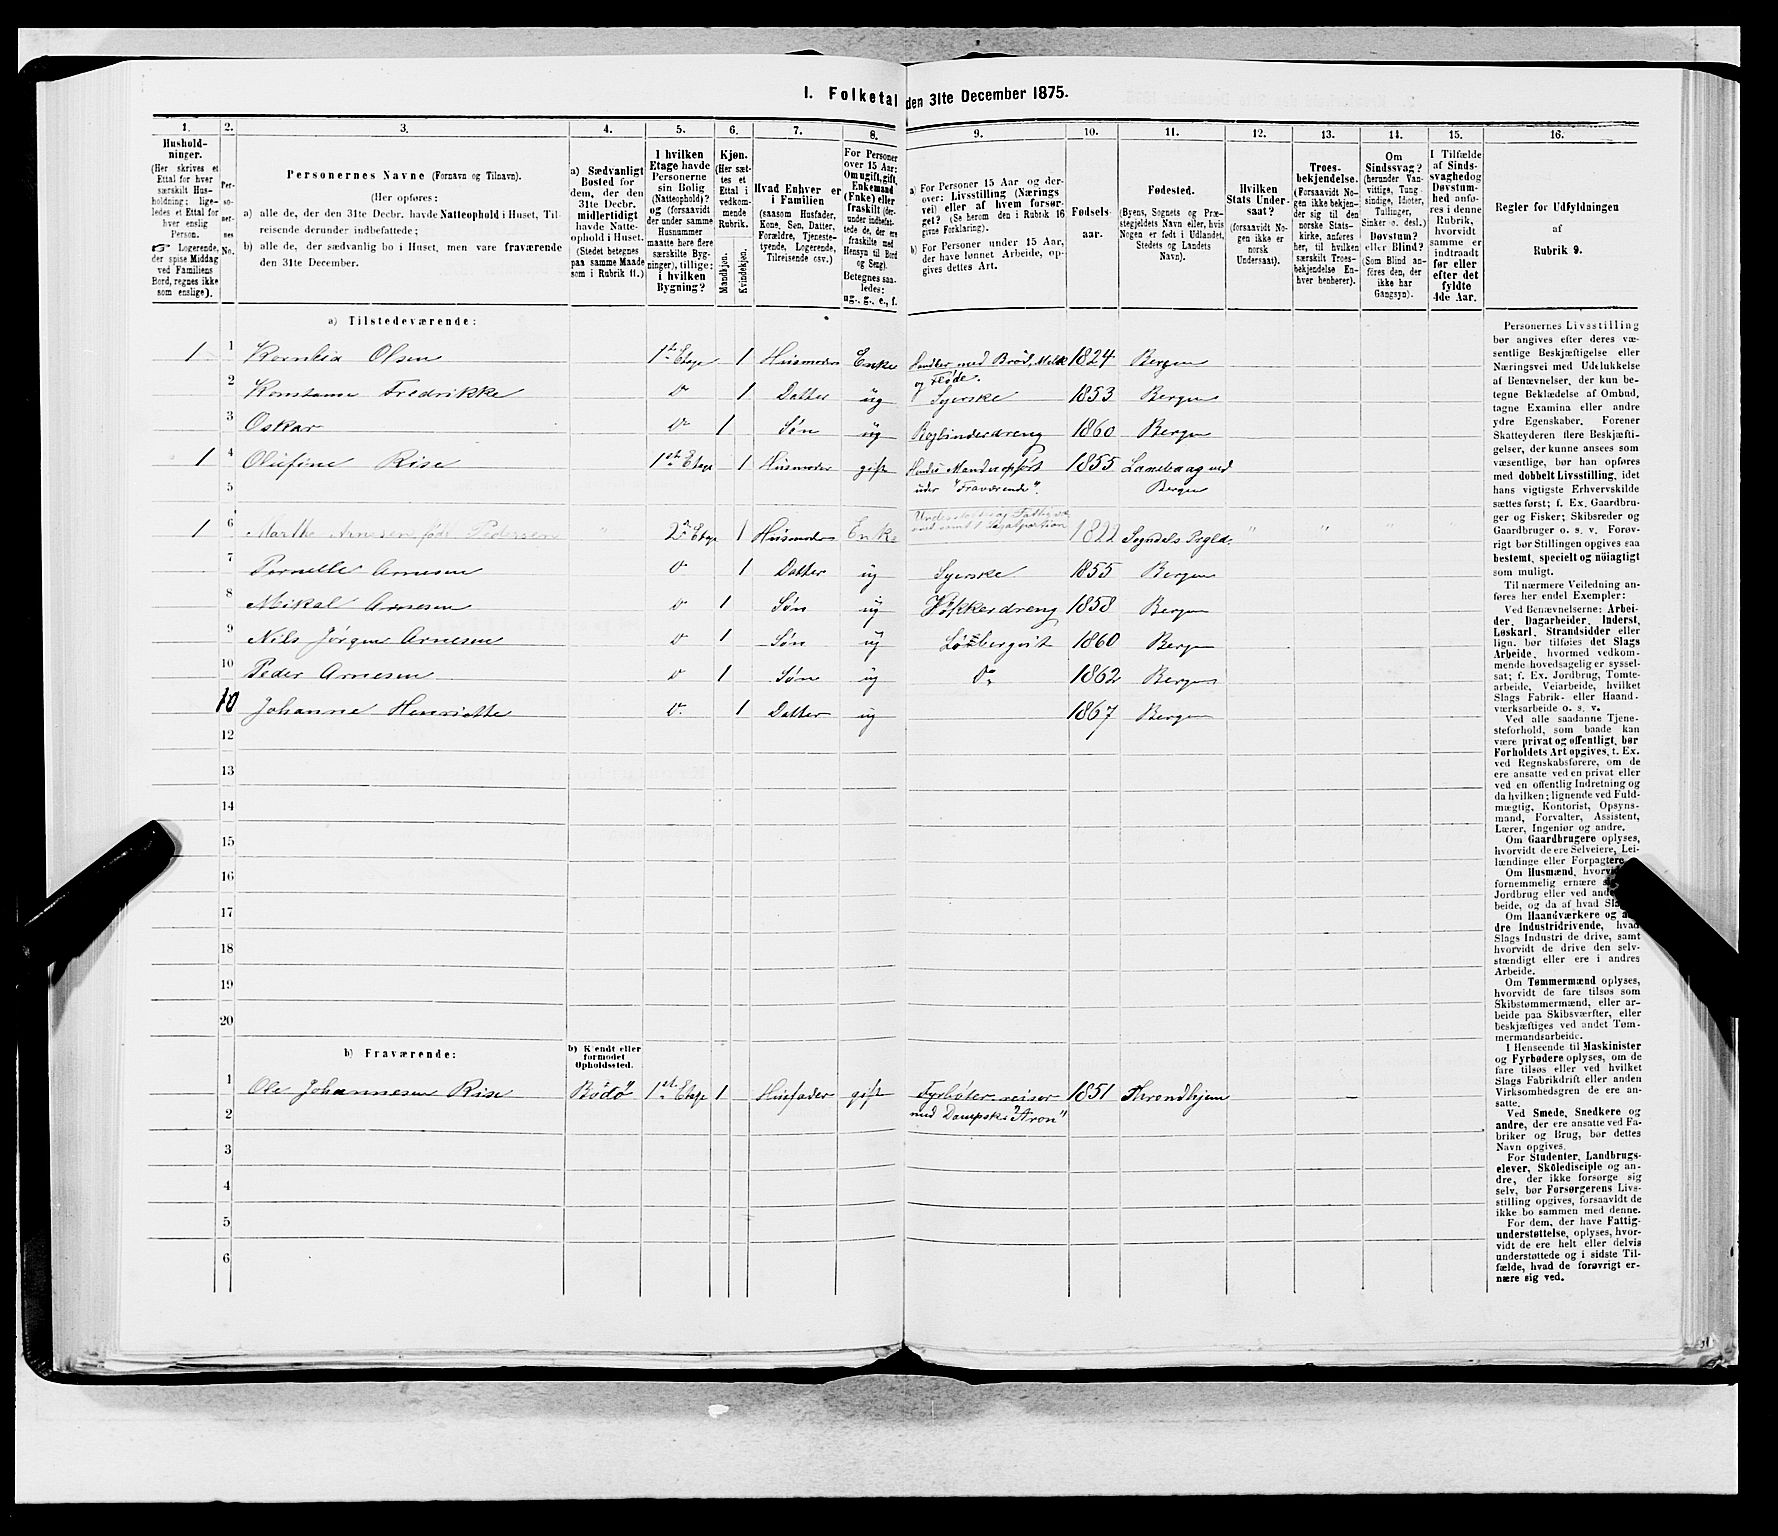 I. Folketal den 31te December 1875.
1. 2. 3. 4. 5. 6. 7. 8. 9. 10. 11. 12. 13. 14. 15. 16.
Hushold-
ninger.
(Her skrives et
Ettal for hver
særskilt Hus-
holdning; lige-
ledes et Ettal for
hver enslig
Person.
☞ Logerende,
der spise Middag
ved Familiens
Bord, regnes ikke
som enslige).
Per-
so-
ner-
nes
No.
Personernes Navne (Fornavn og Tilnavn).
(Her opføres:
a) alle de, der den 31te Decbr. havde Natteophold i Huset, Til-
reisende derunder indbefattede;
b) alle de, der sædvanlig bo i Huset, men vare fraværende
den 31te December.
a) Sædvanligt
Bosted for
dem, der den
31te Decbr.
midlertidigt
havde Natte-
ophold i Huset.
(Stedet betegnes
paa samme Maade
som i Rubrik 11.)
I hvilken
Etage havde
Personerne
sin Bolig
(Natteophold)?
og (forsaavidt
der under samme
Husnummer
maatte høre flere
særskilte Byg-
ninger), tillige:
i hvilken
Bygning?
Kjøn.
(Her sæt-
tes et
Ettal i
vedkom-
mende
Rubrik.
Mandkjøn.
Kvindekjøn.
Hvad Enhver er
i Familien
(saasom Husfader,
Kone, Søn, Datter,
Forældre, Tjeneste-
tyende, Logerende,
Tilreisende osv.)
For Personer
over 15 Aar:
Om ugift, gift,
Enkemand
(Enke) eller
fraskilt (der-
under indbefat-
tede de, der ere
fraskilte med
Hensyn til Bord
og Seng).
Betegnes saa-
ledes:
ug., g., e., f.
a) For Personer 15 Aar og der-
over: Livsstilling (Nærings
vei) eller af hvem forsør-
get? (Se herom den i Rubrik 16
givne Forklaring).
b) For Personer under 15 Aar,
der have lønnet Arbeide, op-
gives dettes Art.
Fødsels-
aar.
Fødested.
(Byens, Sognets og Præ-
stegjeldets Navn eller, hvis
Nogen er født i Udlandet,
Stedets og Landets
Navn).
Hvilken
Stats Under-
saat?
(forsaavidt No-
gen ikke er
norsk
Undersaat).
Troes-
bekjendelse.
(Forsaavidt No-
gen ikke bekjen-
der sig til den
norske Stats-
kirke, anføres
her, til hvilken
særskilt Troes-
bekjendelse En-
hver henhører).
Om
Sindssvag?
(herunder Van-
vittige, Tung-
sindige, Idioter,
Tullinger,
Sinker o. desl.)
Døvstum?
eller Blind?
(Som Blind an-
føres den, der
ikke har
Gangsyn).
I Tilfælde
af Sinds-
svaghed og
Døvstum-
hed anfø-
res i denne
Rubrik,
hvorvidt
samme er
indtraadt
før eller
efter det
fyldte
4de Aar.
Regler for Udfyldningen
af
Rubrik 9.
a) Tilstedeværende:
1 1 Olsen 1ste Etage 1 Husmoder Enke Handler med Brød, Melk 1824 Bergen
og Fløde.
2 Fredrikke do 1 Datter ug Syerske 1853 Bergen
3 Oskar do 1 Søn ug Bogbinderdreng 1860 Bergen
1 4 Olufine Rise 1ste Etage 1 Husmoder gift Mand er opført 1855 ved
5 under "Fraværende". Bergen
1 6 Marthe Arnesen født Pedersen " 2den Etage 1 Husmoder Enke 1822 Sogndals Prgld. " " "
7 Arnesen do 1 Datter ug Syerske 1855 Bergen
8 Mikal Arnesen do 1 Søn ug 1858 Bergen
9 Nils Jörgen Arnesen do 1 Søn ug 1860 Bergen
10 Peder Arnesen do 1 Søn ug Do. 1862 Bergen
10 Johanne Henriette do. 1 Datter ug 1867 Bergen
12
13
14
15
16
17
18
19
20
b) Fraværende:
b) Kjendt eller
formodet
Opholdssted.
1 Ole Johannesen Rise Bodö 1ste Etage 1 Husfader gift Fyrböter reiser 1851 Throndhjem
2 med Dampsk. "Aron"
3
4
5
6
Personernes Livsstilling
bør angives efter deres væ-
sentlige Beskjæftigelse eller
Næringsvei med Udelukkelse
af Benævnelser, der kun be-
tegne Beklædelse af Ombud,
tagne Examina eller andre
ydre Egenskaber. Forener
Skatteyderen flere Beskjæfti-
gelser, der kunne ansees som
væsentlige, bør han opføres
med dobbelt Livsstilling, idet
hans vigtigste Erhvervskilde
sættes først; f. Ex. Gaardbru-
ger og Fisker; Skibsreder og
Gaardbruger o. s. v. Forøv-
rigt bør Stillingen opgives saa
bestemt, specielt og nøiagtigt
som muligt.
Til nærmere Veiledning an-
føres her endel Exempler:
Ved Benævnelserne: Arbei-
der, Dagarbeider, Inderst,
Løskarl, Strandsidder eller
lign. bør tilføies det Slags
Arbeide, hvormed vedkom-
mende hovedsagelig er syssel-
sat; f. Ex. Jordbrug, Tomte-
arbeide, Veiarbeide, hvilket
Slags Fabrik- eller Haand-
værksarbeide o. s. v.
Ved alle saadanne Tjene-
steforhold, som baade kan
være privat og offentligt, bør
Forholdets Art opgives, t. Ex.
ved Regnskabsførere, om de
ere ansatte ved en privat eller
ved en offentlig Indretning og
da hvilken; lignende ved Fuld-
mægtig, Kontorist, Opsyns-
mand, Forvalter, Assistent,
Lærer, Ingeniør og andre.
Om Gaardbrugere oplyses,
hvorvidt de ere Selveiere, Lei-
lændinge eller Forpagtere.
Om Husmænd,
fornemmelig ernære
Jordbrug eller ved
beide, og da af hvad
Om Haandværkere og
dre Industridrivende,
Slags Industri de drive, samt
hvorvidt de drive den selv-
stændigt eller ere i andres
Arbeide.
Om Tømmermænd oplyses,
hvorvidt de fare tilsøs som
Skibstømmermænd, eller ar-
beide paa Skibsværfter, eller
beskjæftiges ved andet Tøm-
mermandsarbeide.
I Henseende til Maskinister
og Fyrbødere oplyses, om de
fare tilsøs eller ved hvilket
Slags Fabrikdrift eller anden
Virksomhedsgren de ere an-
satte.
Ved Smede, Snedkere og
andre, der ere ansatte ved Fa-
briker og Brug, bør dettes
Navn opgives.
For Studenter, Landbrugs-
elever, Skoledisciple og an-
dre, der ikke forsørge sig
selv, bør Forsørgerens Livs-
stilling opgives, forsaavidt de
ikke bo sammen med denne.
For dem, der have Fattig-
understøttelse, oplyses, hvor-
vidt de ere helt eller delvis
understøttede og i sidste Til-
fælde, hvad de forøvrigt er-
nære sig ved.